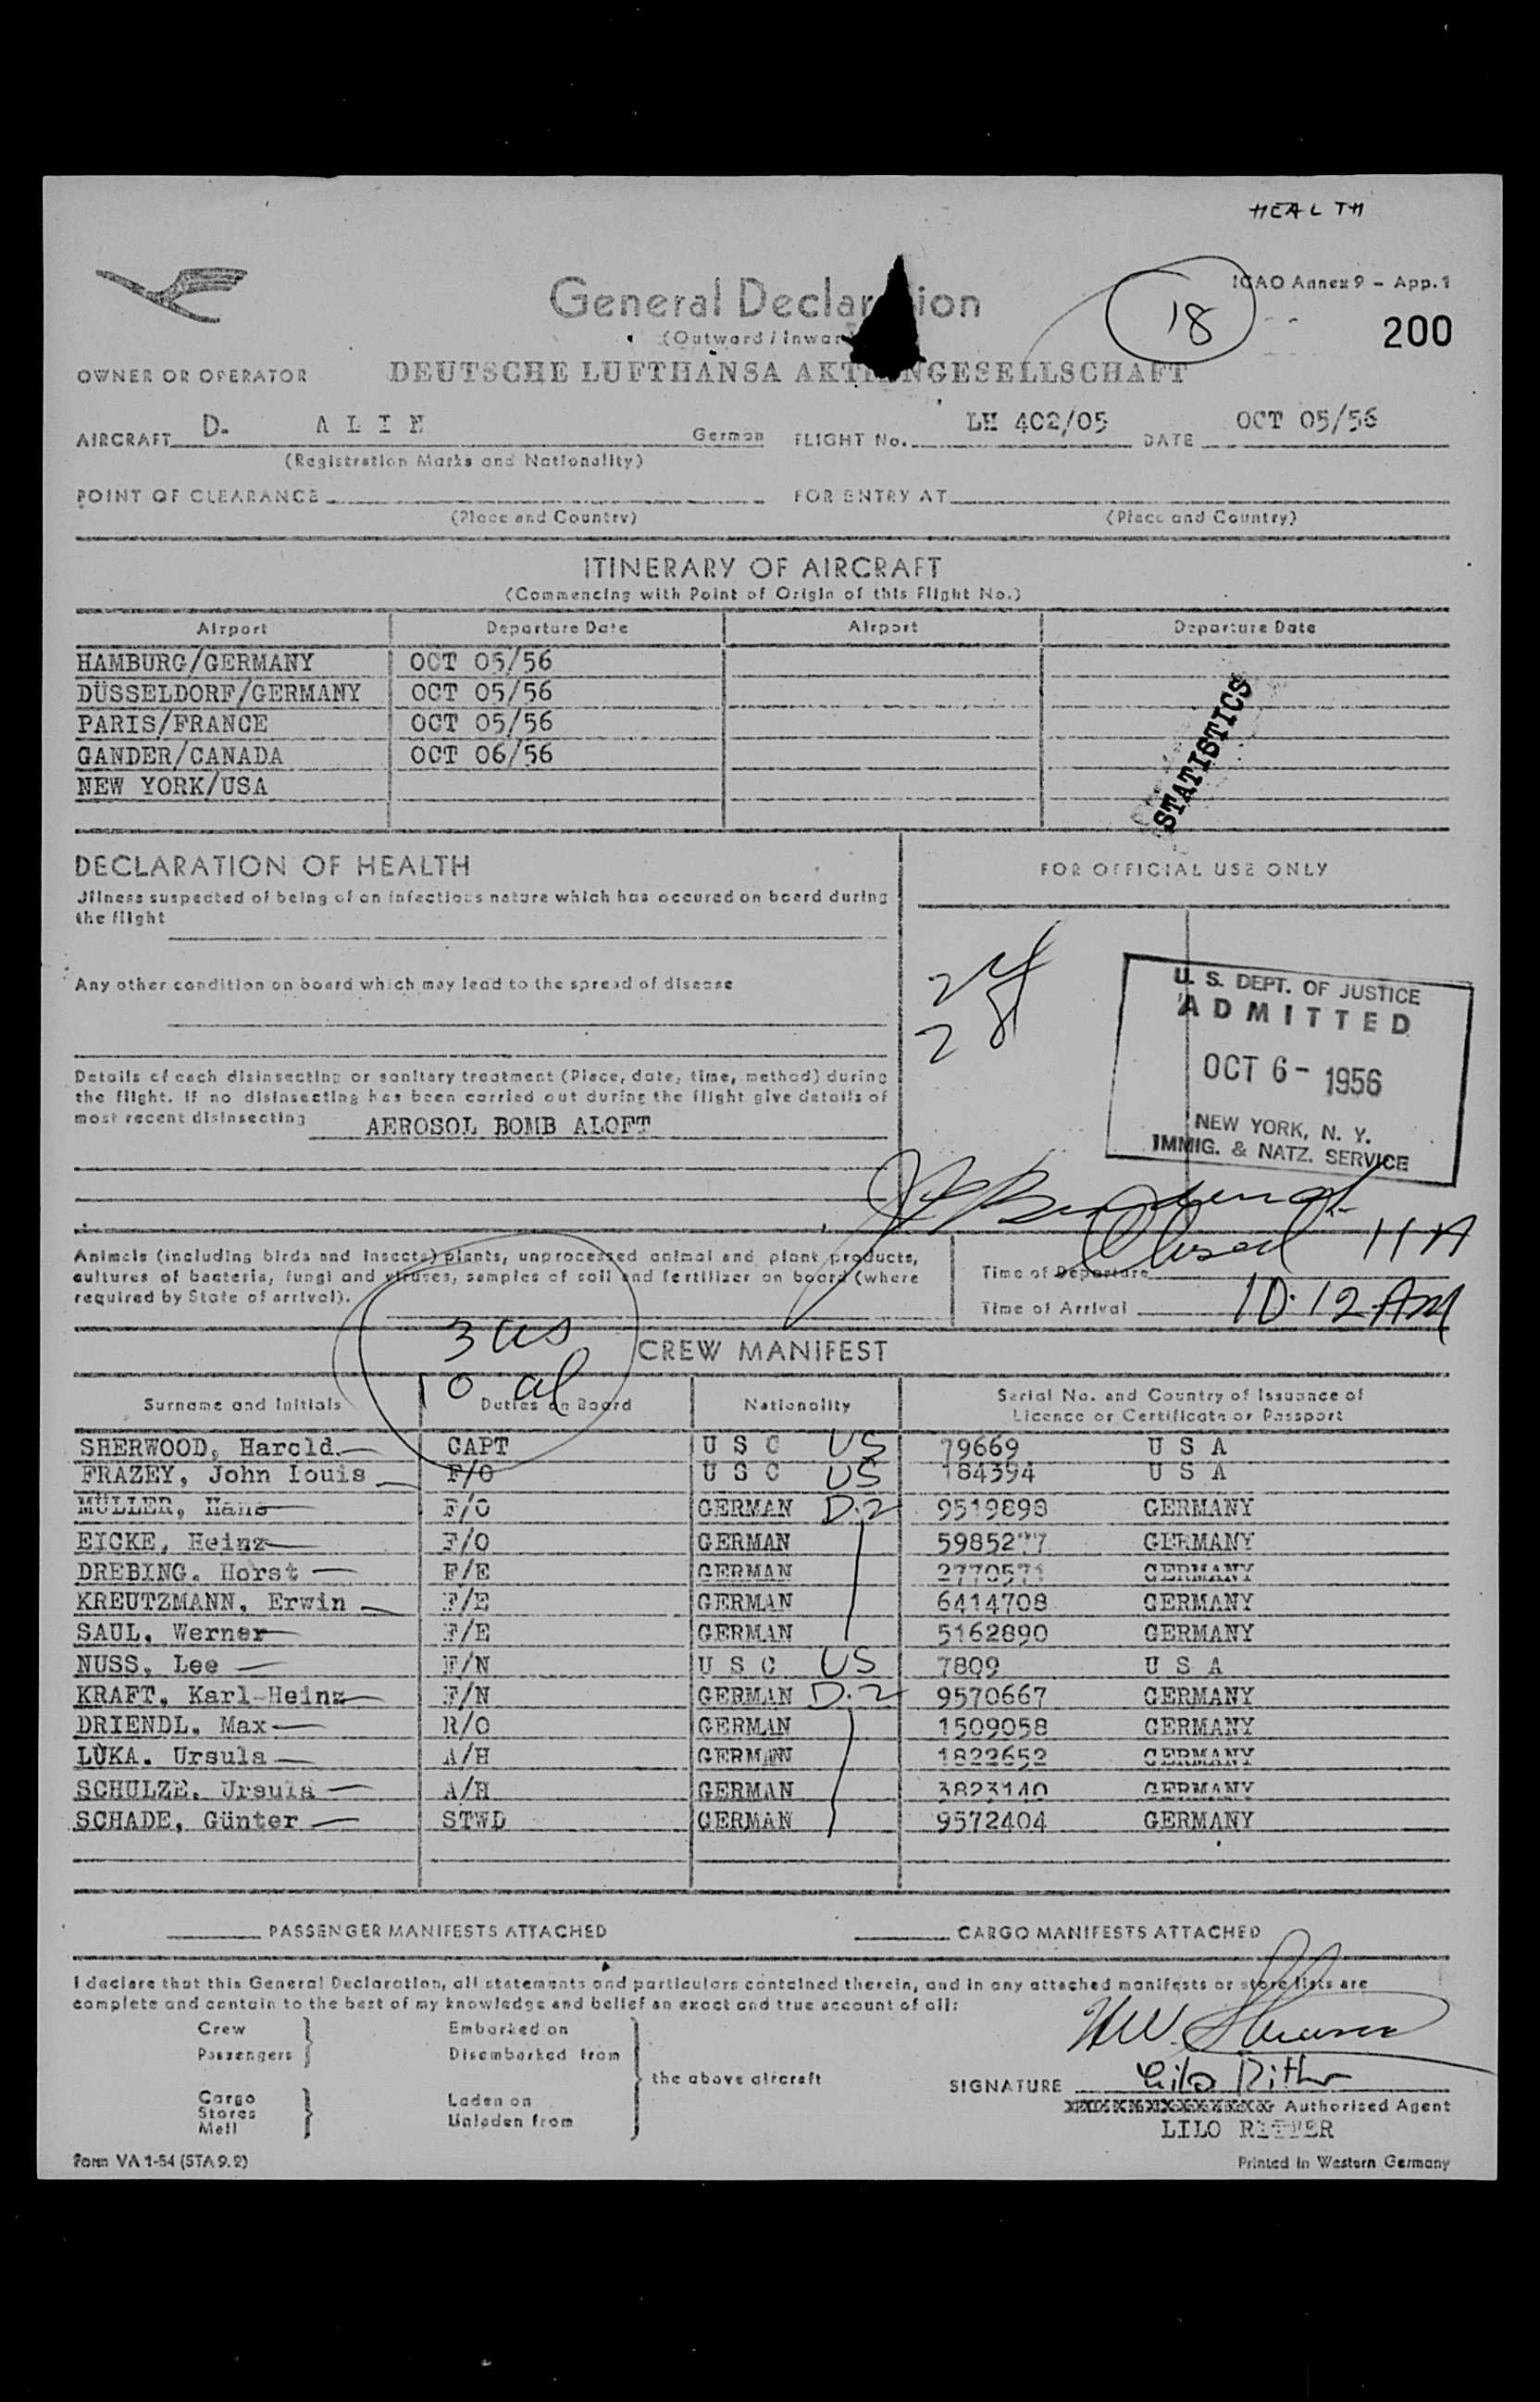 HEALTH
ICAO Annex 9 - App. 1
General Declaration
18
200
(Outward / Inward)
OWNER OR OPERATOR DEUTSCHE LUFTHANSA AKTIENGESELLSCHAFT
AIRCRAFT D- A L I N German FLIGHT No. LH 402/05 DATE OCT 05/56
(Registration Marks and Nationality)
POINT OF CLEARANCE FOR ENTRY AT
(Place and Country) (Place and Country)
ITINERARY OF AIRCRAFT
(Commencing with Point of Origin of this Flight No.)
Airport Departure Date Airport Departure Date
HAMBURG/GERMANY OCT 05/56
DÜSSELDORF/GERMANY OCT 05/56
PARIS/FRANCE OCT 05/56
GANDER/CANADA OCT 06/56
NEW YORK/USA
STATISTICS
DECLARATION OF HEALTH
Jilness suspected of being of an infectious nature which has occured on board during
the flight
Any other condition on board which may lead to the spread of disease
Details of each disinsecting or sanitary treatment (Place, date, time, method) during
the flight. If no disinsecting has been carried out during the flight give details of
most recent disinsecting AEROSOL BOMB ALOFT
FOR OFFICIAL USE ONLY
U. S. DEPT. OF JUSTICE
ADMITTED
OCT 6 - 1956
NEW YORK, N. Y.
IMMIG. & NATZ. SERVICE
Animals (including birds and insects) plants, unprocessed animal and plant products,
cultures of bacteria, fungi and viruses, samples of soil and fertilizer on board (where
required by State of arrival).
Closed 11 A
Time of Departure
Time of Arrival 10:12 AM
3 us
10 al
CREW MANIFEST
Surname and Initials Duties on Board Nationality Serial No. and Country of Issuance of
Licence or Certificate or Passport
SHERWOOD, Harold CAPT U S C US 79669 U S A
FRAZEY, John Louis F/O U S C US 184394 U S A
MÜLLER, Hans F/O GERMAN D.2 9519898 GERMANY
EICKE, Heinz F/O GERMAN GERMANY
DREBING, Horst F/E GERMAN 2770571 GERMANY
KREUTZMANN, Erwin F/E GERMAN 6414708 GERMANY
SAUL, Werner F/E GERMAN 5162890 GERMANY
NUSS, Lee F/N U S C US 7809 U S A
KRAFT, Karl-Heinz F/N GERMAN D.2 9570667 GERMANY
DRIENDL, Max R/O GERMAN 1509058 GERMANY
LUKA, Ursula A/H GERMAN 1822652 GERMANY
SCHULZE, Ursula A/H GERMAN 3823140 GERMANY
SCHADE, Günter STWD GERMAN 9572404 GERMANY
PASSENGER MANIFESTS ATTACHED CARGO MANIFESTS ATTACHED
I declare that this General Declaration, all statements and particulars contained therein, and in any attached manifests or store lists are
complete and contain to the best of my knowledge and belief an exact and true account of all:
Crew Embarked on
Passengers Disembarked from
the above aircraft
Cargo Laden on
Stores Unladen from
Mail
SIGNATURE Lilo Ritter
Authorised Agent
LILO RITTER
Form VA 1-54 (STA 9.2) Printed in Western Germany